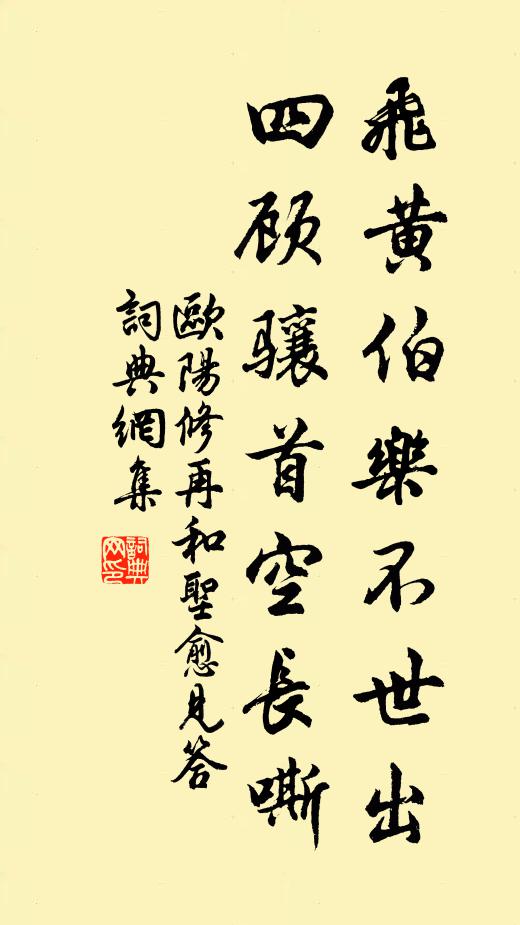 飛黄伯樂不世出
四顾骧首空長嘶
歐陽修再和聖愈見答
詞典網集
詞典网印